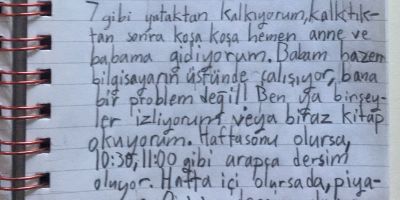 7 gibi yataktan kalkıyorum, kalktık-
tan sonra koşa koşa hemen anne ve
babama gidiyorum. Babam bazen
bilgisayarın üstünde çalışıyor, bana
bir problem değil! Ben ya birşey-
ler izliyorum veya biraz kitap
okuyorum. Haftasonu olursa,
10:30, 11:00 gibi arapça dersim
oluyor. Hafta içi olursada, piya-